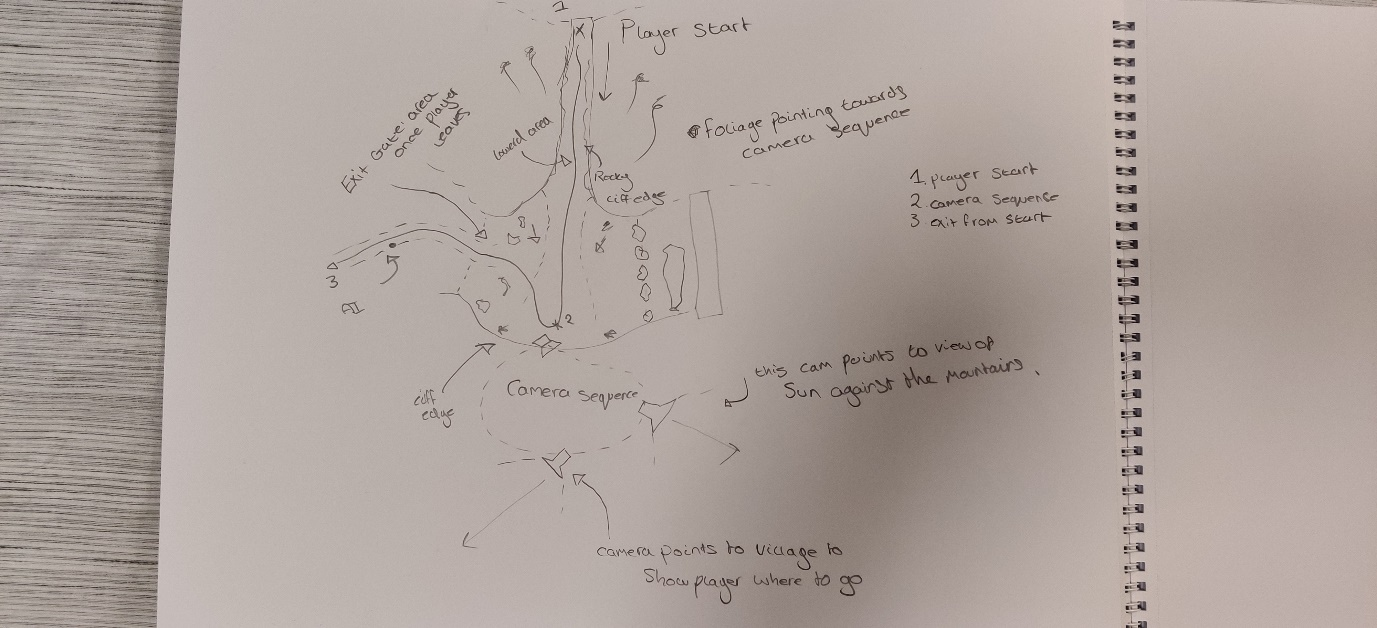 1
Player Start
Exit Gate: area
once player
leaves
lowerd area
foliage pointing towards
camera sequence
Rocky
cliff edge
1. player start
2. camera sequence
3. exit from start
3
AI
2
cliff
edge
Camera sequence
this cam points to view of
Sun against the Mountains.
camera points to village to
Show player where to go